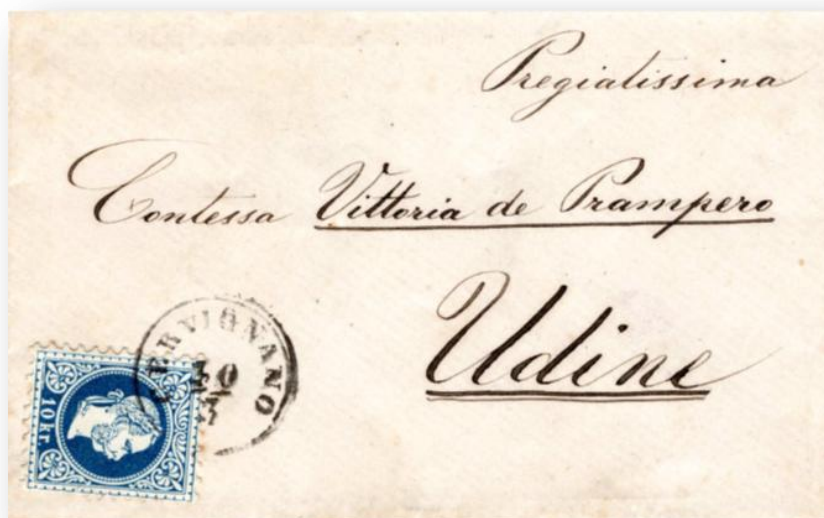 Pregiatissima
Contessa Vittoria de Prampero
Udine
CERVIGNANO
10 Kr.